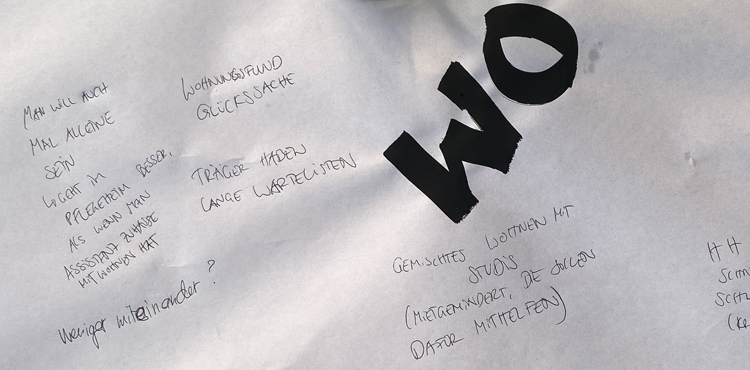 WO
MAN WILL AUCH
MAL ALLEINE
SEIN
GEHT IM
PFLEGEHEIM BESSER,
ALS WENN MAN
ASSISTENZ ZUHAUSE
MIT WOHNEN HAT
Weniger miteinander?
WOHNUNGSFUND
GLÜCKSSACHE
TRÄGER HABEN
LANGE WARTELISTEN
GEMISCHTES WOHNEN MIT
STUDIS
(MIETGEMINDERT, DIE SOLLEN
DAFÜR MITHELFEN)
HH